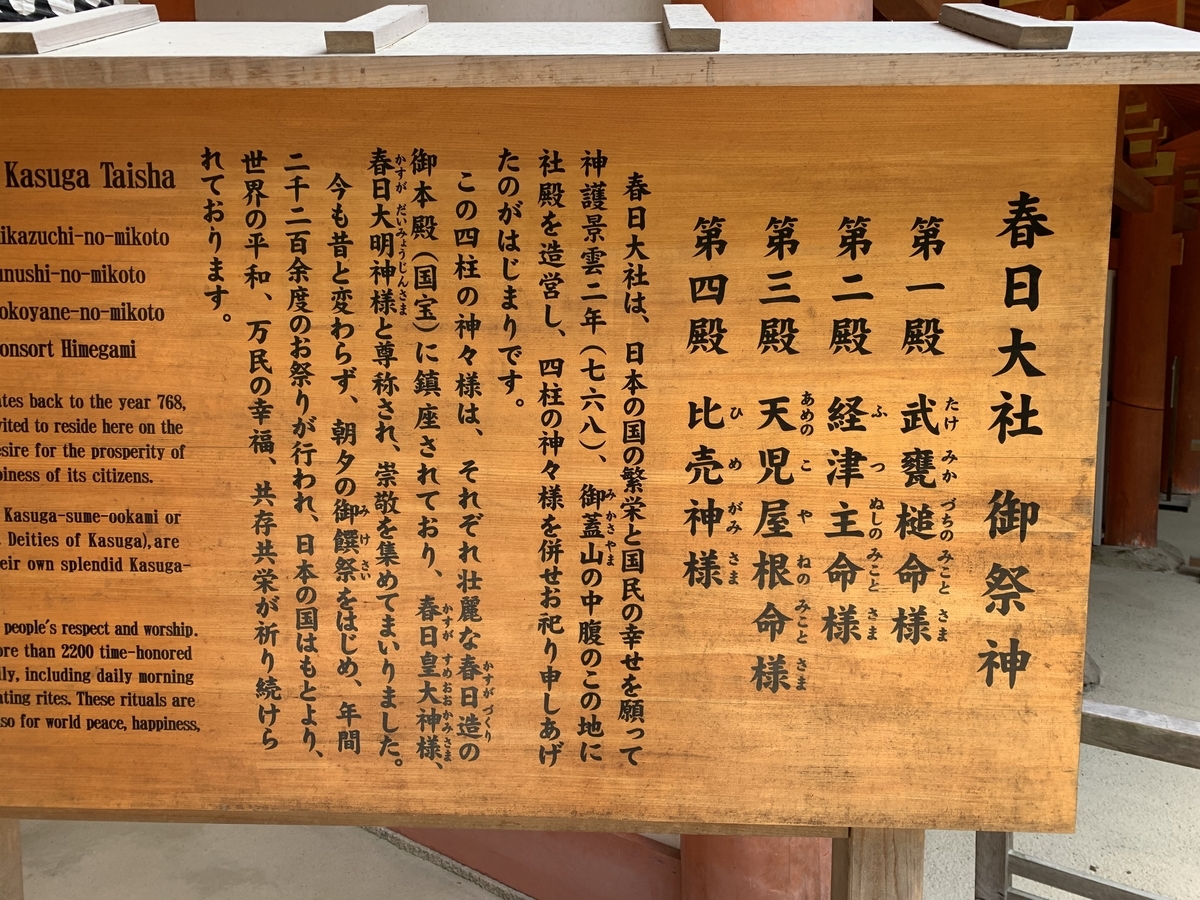 春日大社 御祭神
第一殿 武甕槌命様
たけ みか づちの みこと さま
第二殿 経津主命様
ふ つ ぬしの みこと さま
第三殿 天児屋根命様
あめの こ や ねの みこと さま
第四殿 比売神様
ひ め がみ さま
春日大社は、日本の国の繁栄と国民の幸せを願って
神護景雲二年(七六八)、御蓋山の中腹のこの地に
みかさやま
社殿を造営し、四柱の神々様を併せお祀り申しあげ
たのがはじまりです。
この四柱の神々様は、それぞれ壮麗な春日造の
かすがづくり
御本殿(国宝)に鎮座されており、春日皇大神様、
かすが すめおおかみさま
春日大明神様と尊称され、崇敬を集めてまいりました。
かすが だいみょうじんさま
今も昔と変わらず、朝夕の御饌祭をはじめ、年間
み け さい
二千二百余度のお祭りが行われ、日本の国はもとより、
世界の平和、万民の幸福、共存共栄が祈り続けら
れております。
Kasuga Taisha
ikazuchi-no-mikoto
unushi-no-mikoto
okoyane-no-mikoto
onsort Himegami
ates back to the year 768,
vited to reside here on the
esire for the prosperity of
piness of its citizens.
Kasuga-sume-ookami or
Deities of Kasuga),are
eir own splendid Kasuga-
people's respect and worship.
ore than 2200 time-honored
lly, including daily morning
ating rites. These rituals are
so for world peace, happiness,